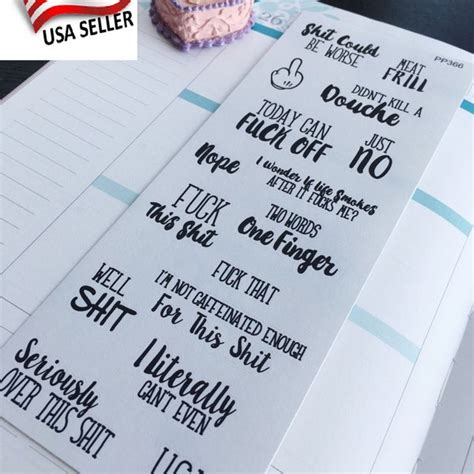 USA SELLER
26
PP366
Shit Could
BE WORSE
MEAT
FRILL
DIDN'T KILL A
Douche
TODAY CAN
FUCK OFF
JUST
NO
Nope
I Wonder If Life Smokes
AFTER IT FUCKS ME?
FUCK
This Shit
TWO WORDS
One Finger
FUCK THAT
WELL
SHIT
I'M NOT CAFFEINATED ENOUGH
For This Shit
Seriously
OVER THIS SHIT
I Literally
CAN'T EVEN